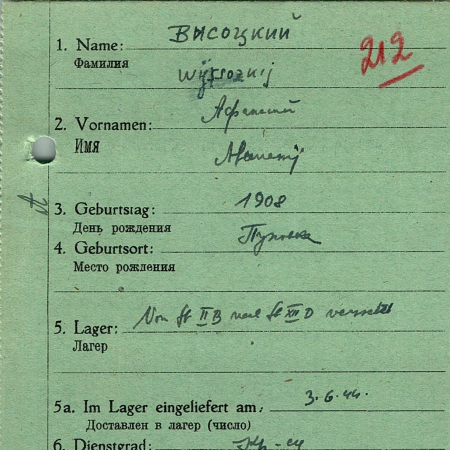 ВЫСОЦКИЙ
212
1. Name:
Фамилия
Wyssozkij
2. Vornamen: Афанасий
Имя
3. Geburtstag: 1908
День рождения
4. Geburtsort:
Место рождения
5. Lager: Von St II B nach St XII D versetzt
Лагерь
5a. Im Lager eingeliefert am: 3.6.44.
Доставлен в лагерь (число)
6. Dienstgrad: